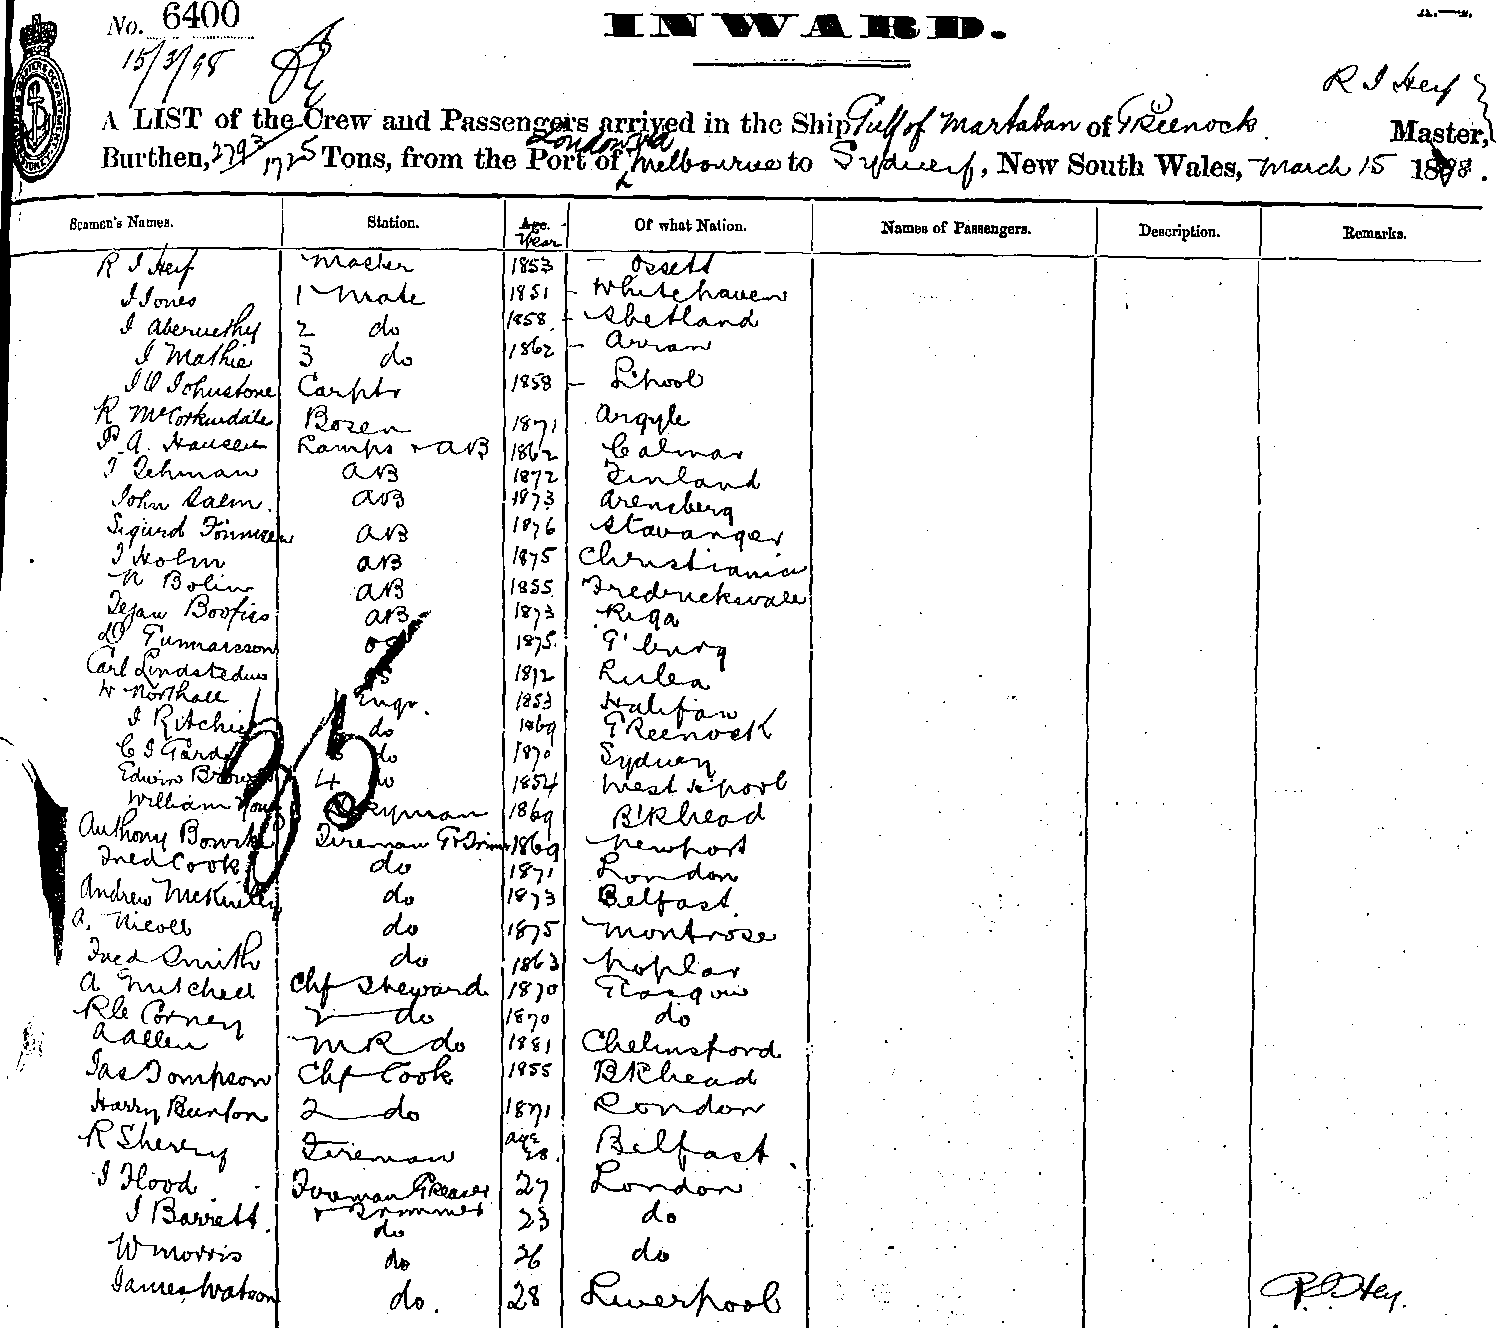 No. 6400
INWARD.
15/3/98
R I Hey
A LIST of the Crew and Passengers arrived in the Ship Gulf of Martaban of Greenock. Master,
London via
Burthen, 2793/1725 Tons, from the Port of Melbourne to Sydney, New South Wales, March 15 1898.
Seamen's Names. Station. Age. Year Of what Nation. Names of Passengers. Description. Remarks.
R I Hey Master 1853 Ossett
J Jones 1 Mate 1851 Whitehaven
J Abernethy 2 do 1858 Shetland
J Mathie 3 do 1862 Arran
J O Johnstone Carptr 1858 L'pool
R McCorkindale Bosen 1871 Argyle
P. A. Hansen Lamps & AB 1862 Calmar
J Lehman AB 1872 Finland
John Saem. AB 1873 Arensberg
Sigurd AB 1876 Stavanger
J Holm AB 1875 Christiania
N Bolin AB 1855 Fredericksvale
AB 1873 Riga
Gunnarsson OS 1875 G'burg
Carl Lindstedus OS 1872 Lulea
W Northall Engr. 1853 Halifax
J Ritchie do 1869 Greenock
C J do 1870 Sydney
Edwin Brown 4 do 1854 West H'pool
William 1869 B'khead
Anthony Fireman 1869 Newport
Fred Cook do 1871 London
Andrew McKinley do 1873 Belfast.
A. Nicoll do 1875 Montrose
Fred Smith do 1863 Poplar
A Mitchell Chf Steward 1870 Glasgow
Corney 2 do 1870 do
A Allen MR do 1881 Chelmsford
Jas Tompson Chf Cook 1855 B'khead
Harry Burton 2 do 1871 London
R Sherry Fireman age 28. Belfast.
J Flood Fireman Greaser 27 London
& Trimmer
J Barrett. do 23 do
W Morris do 26 do
James Watson do. 28 Liverpool
R I Hey.